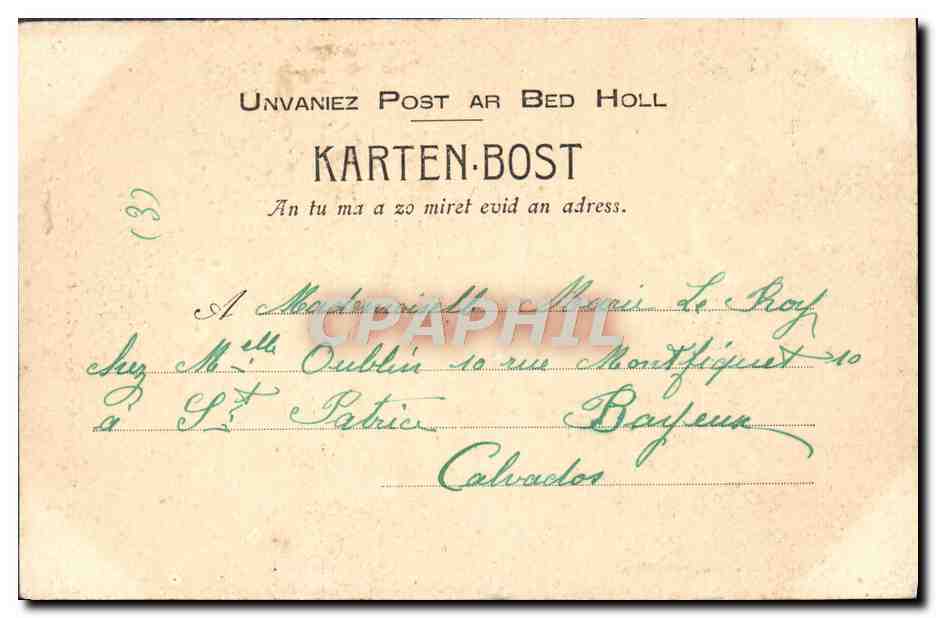 UNVANIEZ POST AR BED HOLL
KARTEN-BOST
An tu ma a zo miret evid an adress.
(3)
A Mademoiselle Marie Le Roy
chez M.elle Oublin 10 rue Montfiquet 10
à St Patrice Bayeux
Calvados
CPAPHIL